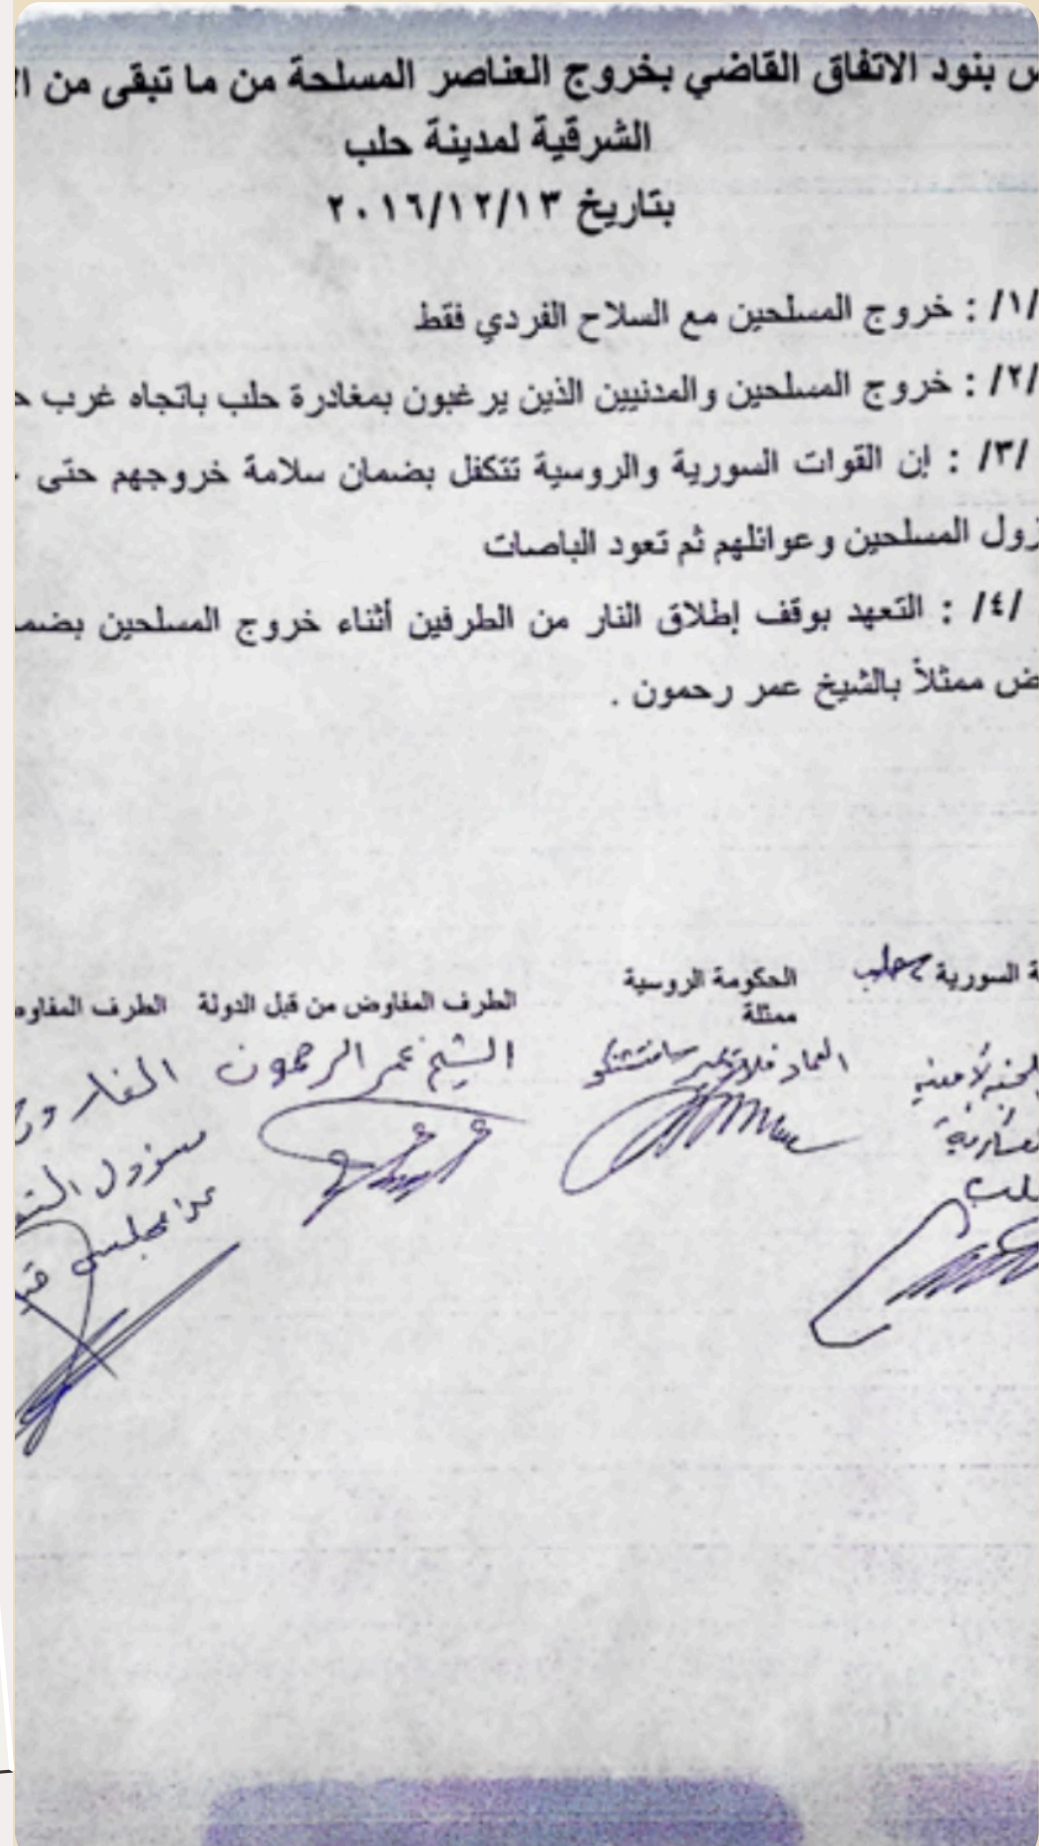 بنود الاتفاق القاضي بخروج العناصر المسلحة من ما تبقى من
الشرقية لمدينة حلب
بتاريخ ٢٠١٦/١٢/١٣
/١/ : خروج المسلحين مع السلاح الفردي فقط
/٢/ : خروج المسلحين والمدنيين الذين يرغبون بمغادرة حلب باتجاه غرب
/٣/ : إن القوات السورية والروسية تتكفل بضمان سلامة خروجهم حتى
المسلحين وعوائلهم ثم تعود الباصات
/٤/ : التعهد بوقف إطلاق النار من الطرفين أثناء خروج المسلحين
ممثلاً بالشيخ عمر رحمون .
السورية بحلب
الحكومة الروسية
ممثلة
الطرف المفاوض من قبل الدولة
الطرف
العماد
الشيخ عمر الرحمون
مسؤول
مجلس